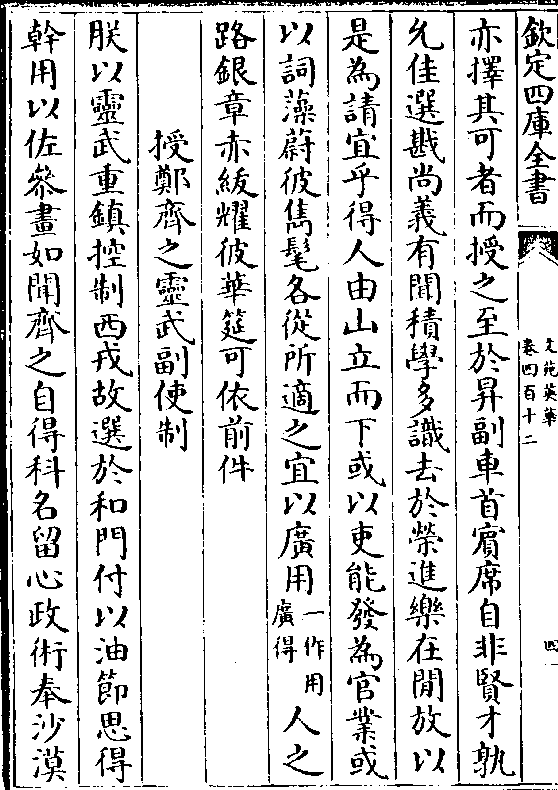 欽定四庫全書
文苑英華
卷四百十二
四
亦擇其可者而授之至於昇副車首賓席自非賢才孰
允佳選戡尚義有聞積學多識去於榮進樂在閒放以
是為請宜乎得人由山立而下或以吏能發為官業或
以詞藻蔚彼雋髦各從所適之宜以廣用一作用廣得人之
路銀章赤紱耀彼華筵可依前件
授鄭齊之靈武副使制
朕以靈武重鎮控制西戎故選於和門付以油節思得
幹用以佐叅畫如聞齊之自得科名留心政術奉沙漠